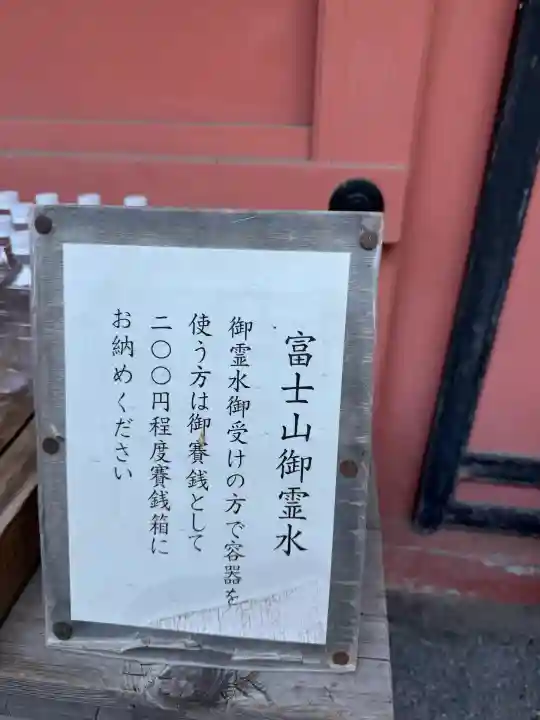 富士山御霊水
御霊水御受けの方で容器を
使う方は御賽銭として
二〇〇円程度賽銭箱に
お納めください